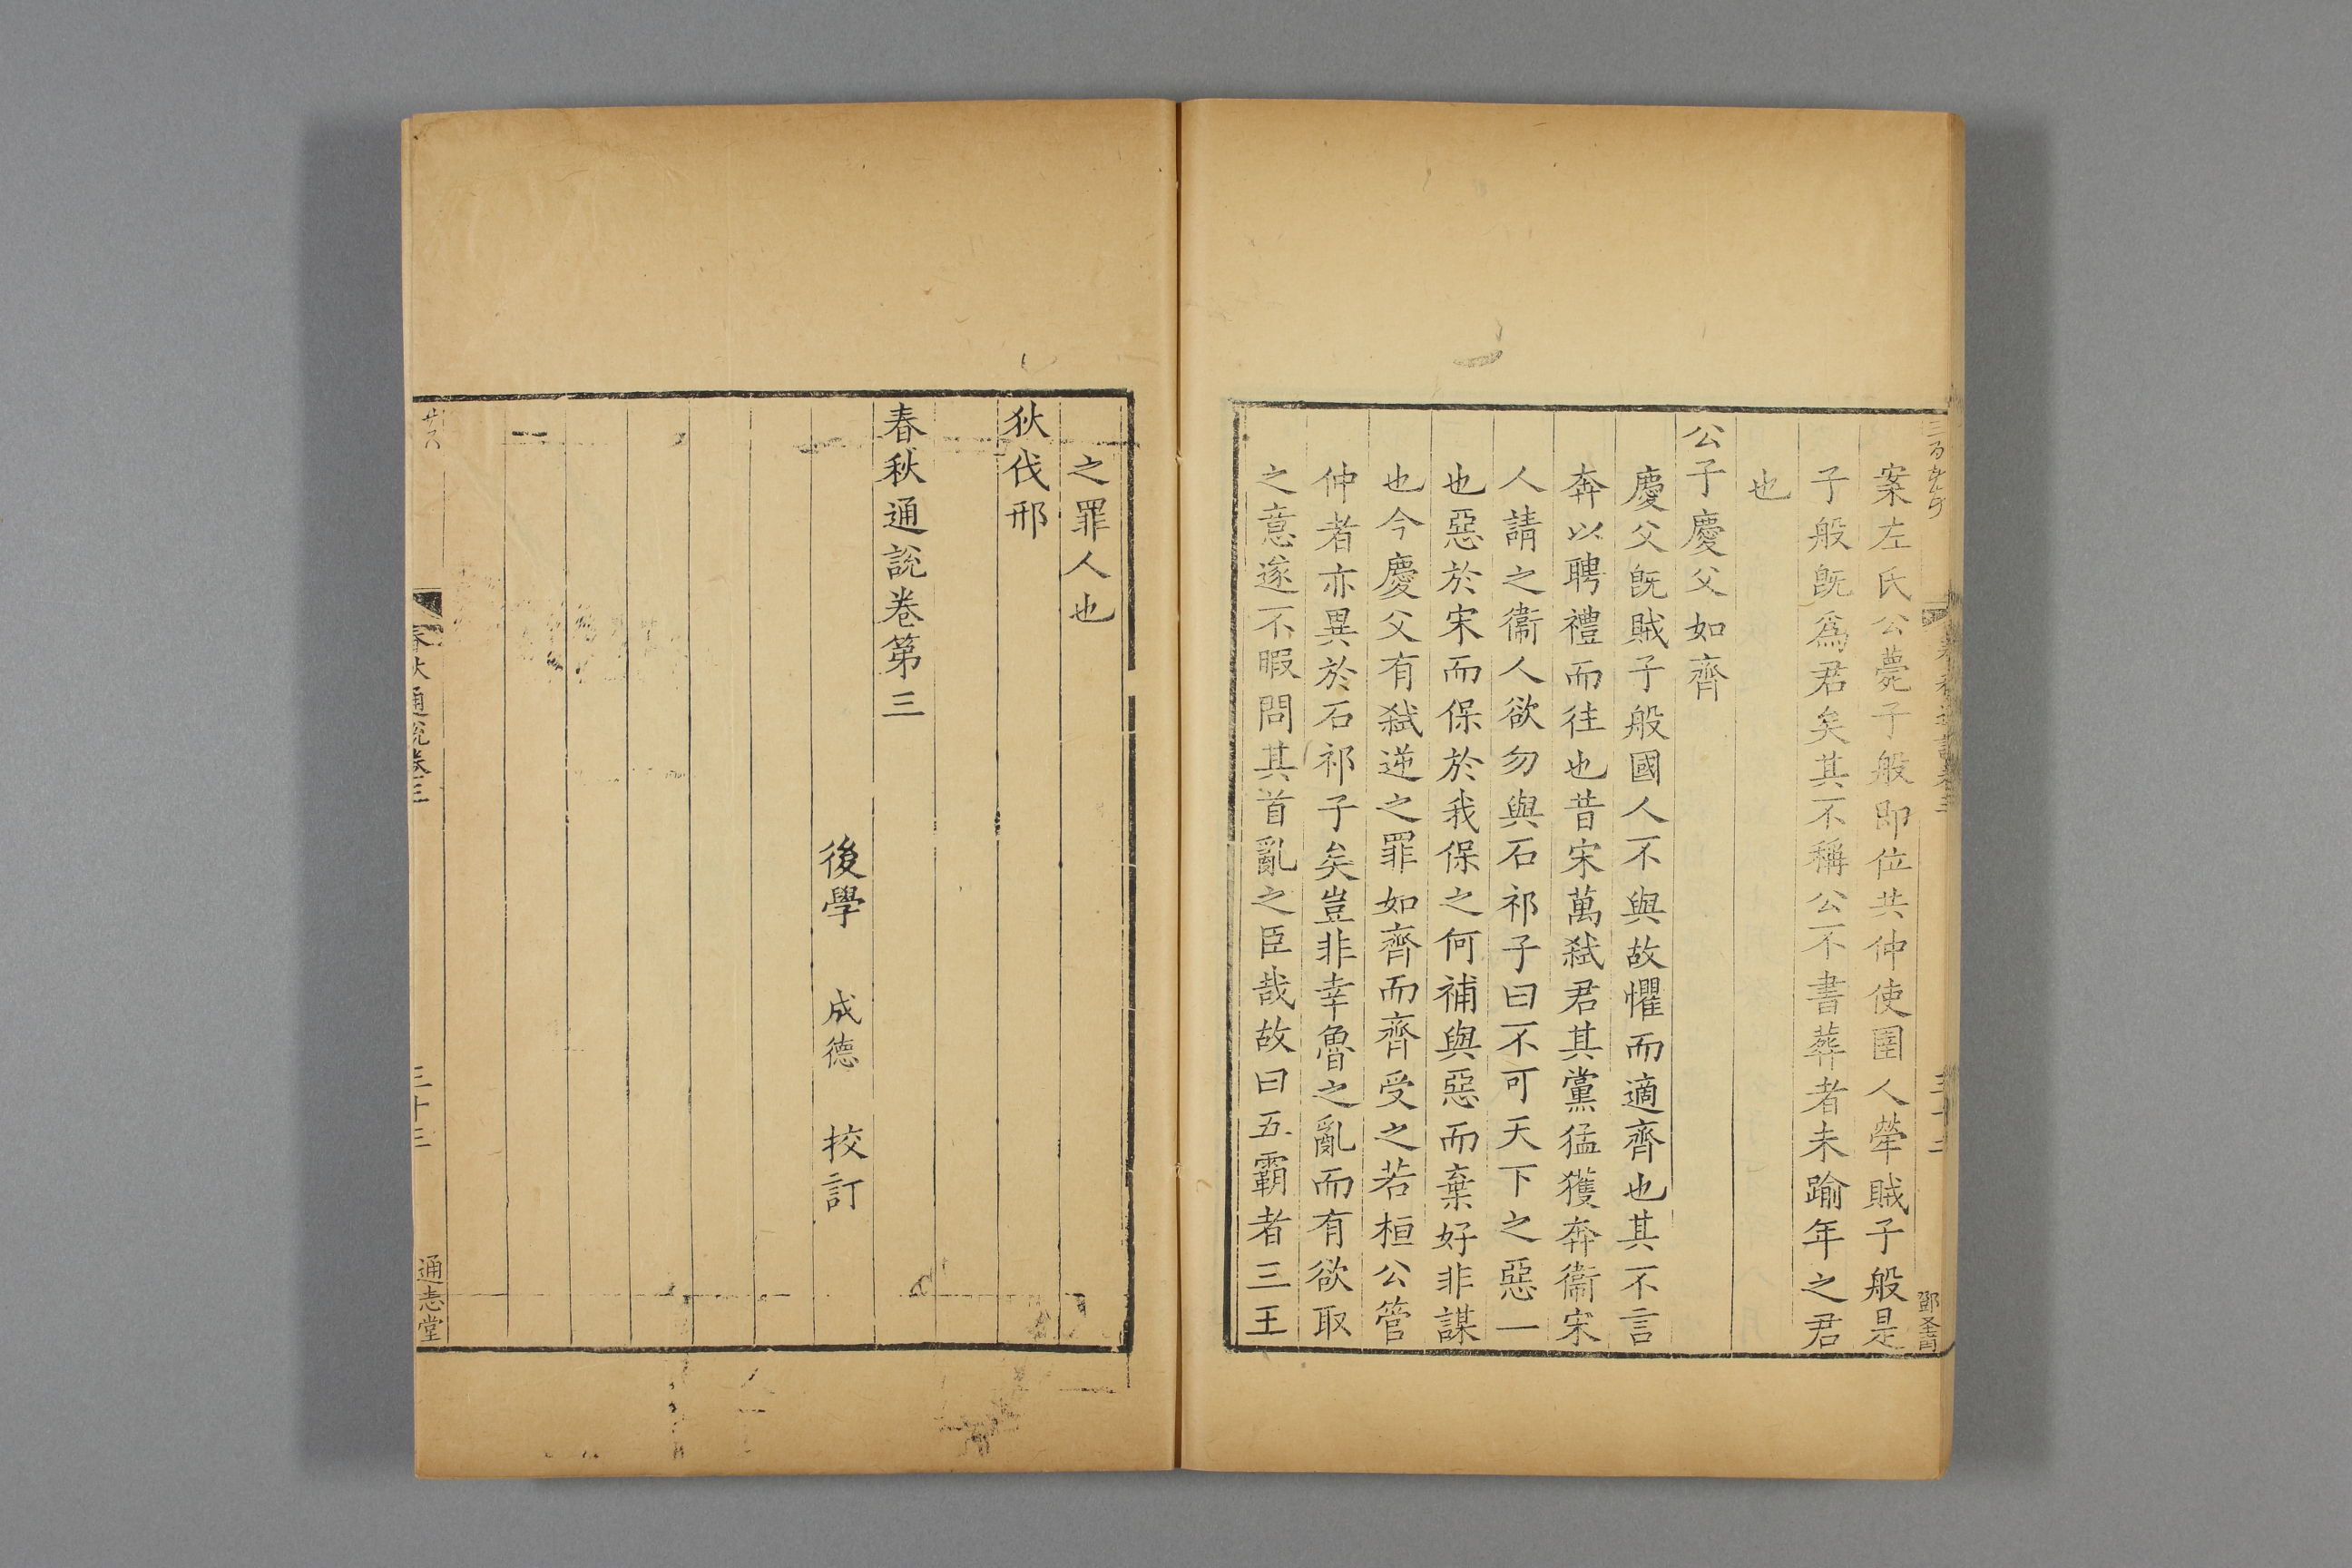 案左氏公薨子般即位共仲使圉人犖賊子般是
子般旣爲君矣其不稱公不書葬者未踰年之君
也
公子慶父如齊
慶父旣賊子般國人不與故懼而適齊也其不言
奔以聘禮而往也昔宋萬弑君其黨猛獲奔衞宋
人請之衞人欲勿與石祁子曰不可天下之惡一
也惡於宋而保於我保之何補與惡而棄好非謀
也今慶父有弑逆之罪如齊而齊受之若桓公管
仲者亦異於石祁子矣豈非幸魯之亂而有欲取
之意遂不暇問其首亂之臣哉故曰五霸者三王
之罪人也
狄伐邢
春秋通說卷第三
後學 成德 校訂
春秋通說卷三
三十三
通志堂